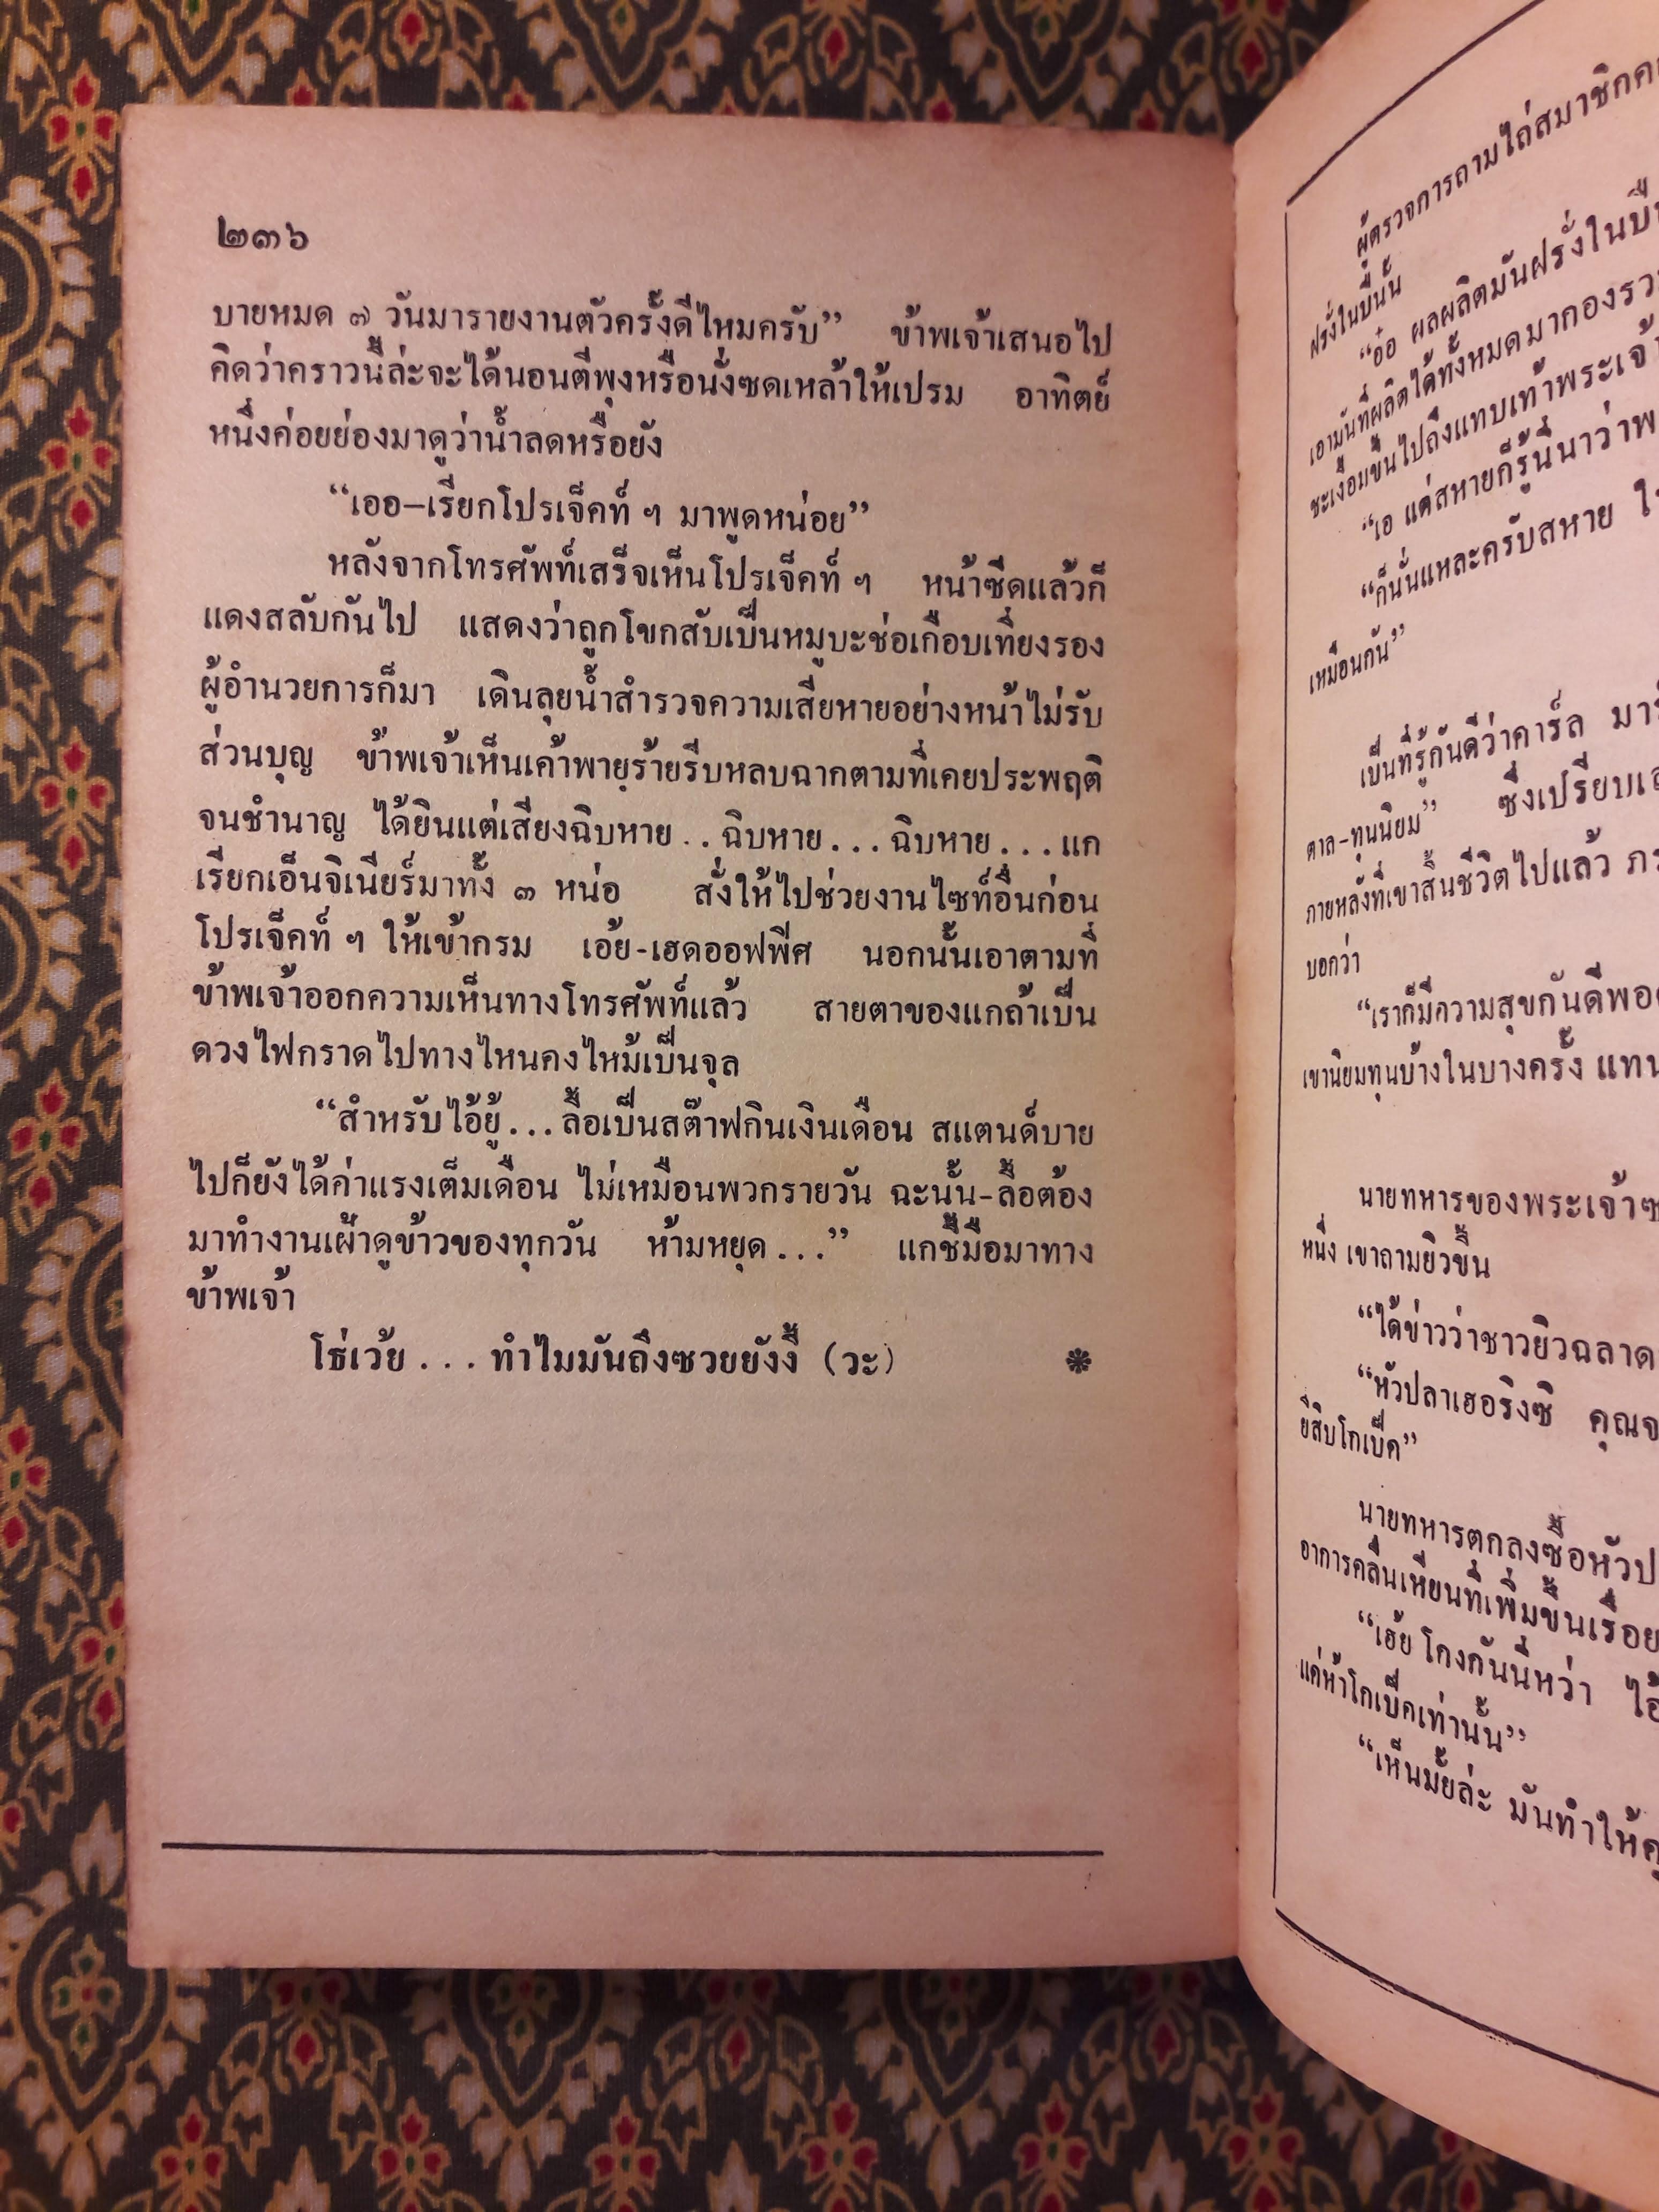 ๒๓๖
บายหมด ๗ วันมารายงานตัวครั้งดีไหมครับ” ข้าพเจ้าเสนอไป
คิดว่าคราวนี้ล่ะจะได้นอนตีพุงหรือนั่งซดเหล้าให้เปรม อาทิตย์
หนึ่งค่อยย่องมาดูว่าน้ำลดหรือยัง
“เออ–เรียกโปรเจ็คท์ ฯ มาพูดหน่อย”
หลังจากโทรศัพท์เสร็จเห็นโปรเจ็คท์ ฯ หน้าซีดแล้วก็
แดงสลับกันไป แสดงว่าถูกโขกสับเป็นหมูบะช่อเกือบเที่ยงรอง
ผู้อำนวยการก็มา เดินลุยน้ำสำรวจความเสียหายอย่างหน้าไม่รับ
ส่วนบุญ ข้าพเจ้าเห็นเค้าพายุร้ายรีบหลบฉากตามที่เคยประพฤติ
จนชำนาญ ได้ยินแต่เสียงฉิบหาย..ฉิบหาย...ฉิบหาย...แก
เรียกเอ็นจิเนียร์มาทั้ง ๓ หน่อ สั่งให้ไปช่วยงานไซท์อื่นก่อน
โปรเจ็คท์ ฯ ให้เข้ากรม เอ้ย-เฮดออฟฟีศ นอกนั้นเอาตามที่
ข้าพเจ้าออกความเห็นทางโทรศัพท์แล้ว สายตาของแกถ้าเป็น
ดวงไฟกราดไปทางไหนคงไหม้เป็นจุล
“สำหรับไอ้ยู้...ลื้อเป็นสต๊าฟกินเงินเดือน สแตนด์บาย
ไปก็ยังได้ค่าแรงเต็มเดือน ไม่เหมือนพวกรายวัน ฉะนั้น-ลื้อต้อง
มาทำงานเฝ้าดูข้าวของทุกวัน ห้ามหยุด...” แกชี้มือมาทาง
ข้าพเจ้า
โธ่เว้ย...ทำไมมันถึงซวยยังงี้ (วะ) *
ผู้ตรวจการถามไถ่สมาชิก
ฝรั่งในปีนั้น
“อ๋อ ผลผลิตมันฝรั่งใน
เอามันที่ผลิตได้ทั้งหมดมากอง
ชะเงื้อมขึ้นไปถึงแทบเท้าพระเจ้า
“เอ แต่สหายก็รู้นี่นาว่า
“ก็นั่นแหละครับสหาย
เหมือนกัน”
เป็นที่รู้กันดีว่าคาร์ล
ทุนนิยม” ซึ่งเปรียบ
ภายหลังที่เขาสิ้นชีวิตไปแล้ว
บอกว่า
“เราก็มีความสุขกันดี
เขานิยมทุนบ้างในบางครั้ง
นายทหารของพระเจ้า
หนึ่ง เขาถามยิวขึ้น
“ได้ข่าวว่าชาวยิวฉลาด
“หัวปลาเฮอริงซิ
ยี่สิบโกเป็ค”
นายทหารตกลงซื้อ
อาการคลื่นเหียนที่เพิ่มขึ้น
“เฮ้ย โกงกันนี่หว่า
แค่ห้าโกเป็คเท่านั้น”
“เห็นมั้ยล่ะ มันทำให้